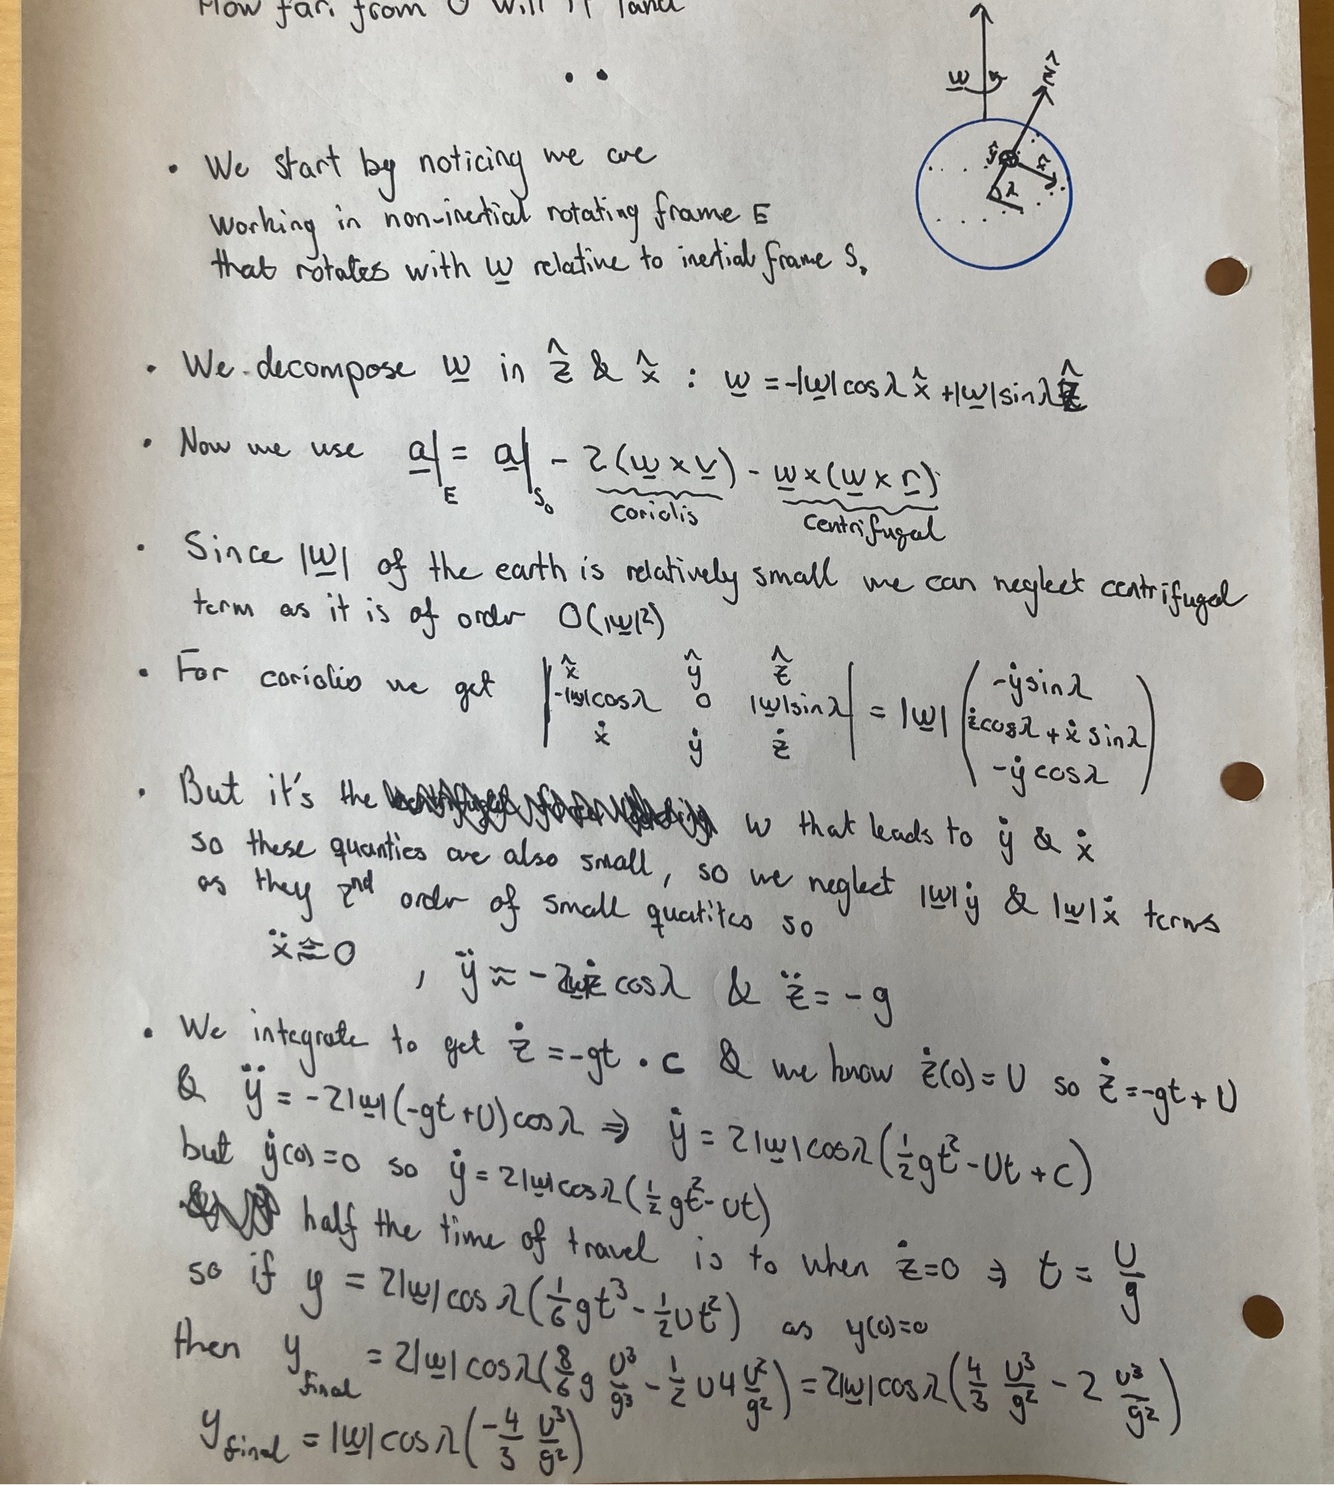 How far from O will it land
• We start by noticing we are
working in non-inertial rotating frame E
that rotates with w relative to inertial frame S₀
w ẑ
ŷ x̂
λ
• We decompose w in ẑ & x̂ : w = -|w|cosλ x̂ + |w|sinλ ẑ
• Now we use a|_E = a|_S₀ - 2(w × v) - w×(w × r)
coriolis centrifugal
• Since |w| of the earth is relatively small we can neglect centrifugal
term as it is of order O(|w|²)
• For coriolis we get | x̂ ŷ ẑ ; -|w|cosλ 0 |w|sinλ ; ẋ ẏ ż | = |w| ( -ẏ sinλ ; ż cosλ + ẋ sinλ ; -ẏ cosλ )
• But it's the w that leads to ẏ & ẋ
so these quanties are also small, so we neglect |w|ẏ & |w|ẋ terms
as they 2nd order of small quatites so
ẍ ≈ 0 , ÿ ≈ -2wż cosλ & z̈ = -g
• We integrate to get ż = -gt + c & we know ż(0) = U so ż = -gt + U
& ÿ = -2|w|(-gt + U)cosλ ⇒ ẏ = 2|w|cosλ(½gt² - Ut + c)
but ẏ(0) = 0 so ẏ = 2|w|cosλ(½gt² - Ut)
half the time of travel is to when ż = 0 ⇒ t = U/g
so if y = 2|w|cosλ(1/6 gt³ - ½Ut²) as y(0) = 0
then y_final = 2|w|cosλ(8/6 g U³/g³ - ½ U 4 U²/g²) = 2|w|cosλ(4/3 U³/g² - 2 U³/g²)
y_final = |w|cosλ(-4/3 U³/g²)